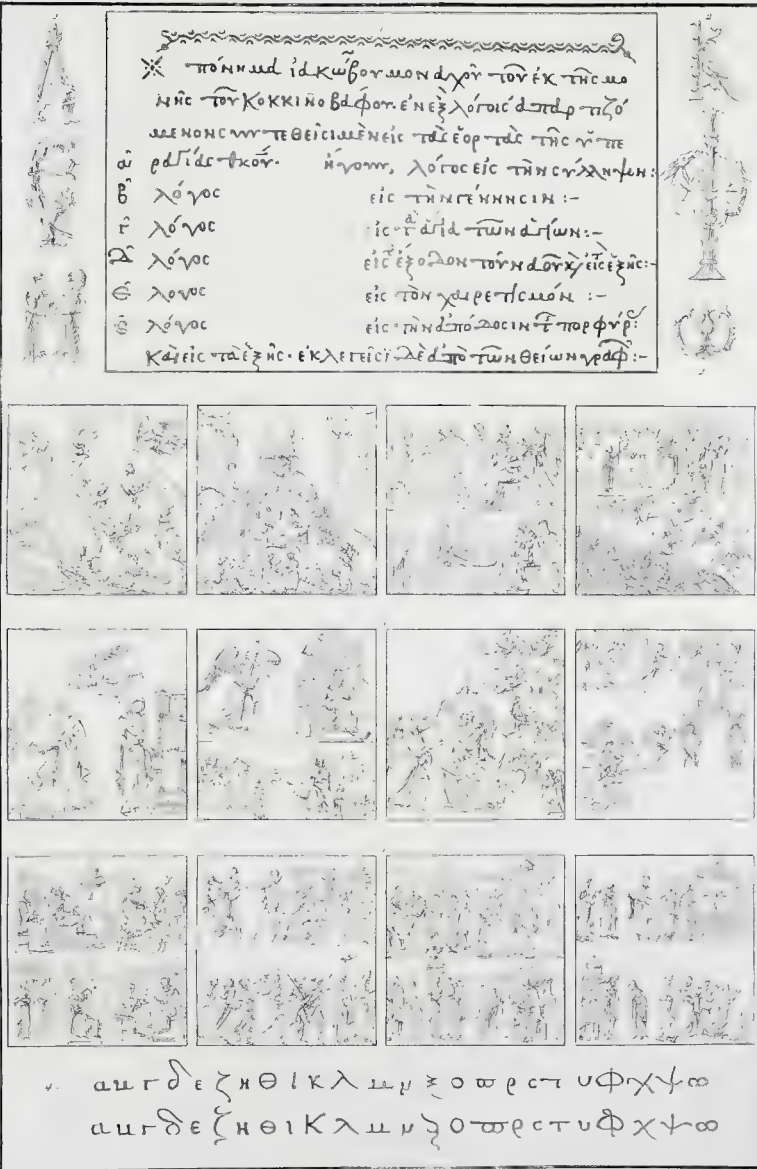 πόνημα ἰακώβου μοναχοῦ τοῦ ἐκ τῆς μο
νῆς τοῦ Κοκκινοβάφου. ἐν ἓξ λόγοις ἀπαρτιζό
μενον συντεθεῖσι μὲν εἰς τὰς ἑορτὰς τῆς ὑπε
ραγίας θκοῦ. ἤγουν, λόγος εἰς τὴν σύλληψιν:
α
β λόγος εἰς τὴν γέννησιν :-
γ λόγος εἰς τ ἅγια τῶν ἁγίων:-
δ λόγος εἰς ἐξῆς:-
ε λόγος εἰς τὸν χαιρετισμόν :-
ς λόγος εἰς τὴν ἀπόδοσιν τ πορφύρ:
καὶ εἰς τὰ ἐξῆς. ἐκλεγεῖσι δὲ ἀπὸ τῶν θείων γραφ:-
α β γ δ ε ζ η θ ι κ λ μ ν ξ ο π ρ ς τ υ φ χ ψ ω
α β γ δ ε ζ η θ ι κ λ μ ν ξ ο π ρ ς τ υ φ χ ψ ω